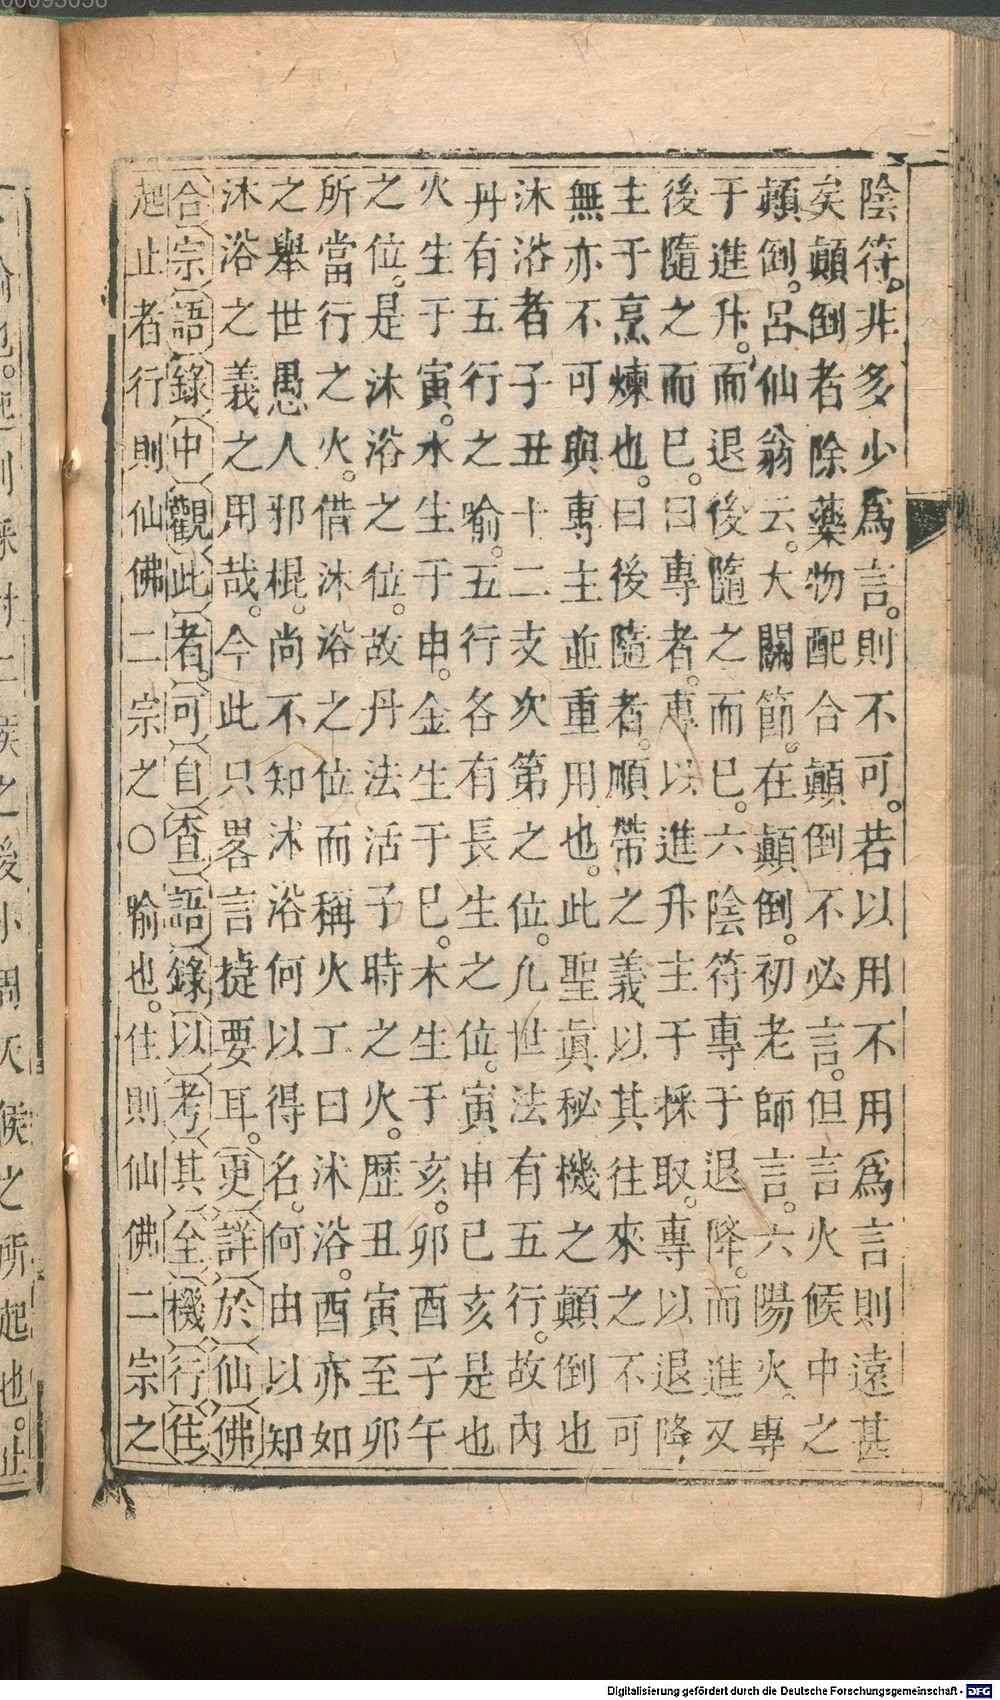 陰符。非多少爲言。則不可。若以用不用爲言則遠甚
矣顛倒者除藥物配合顛倒不必言。但言火候中之
顛倒。呂仙翁云。大關節。在顛倒。初老師言。六陽火。專
于進升。而退後隨之而已。六陰符專于退降。而進又
後隨之而已。曰專者。專以進升主于採取。專以退降
主于烹煉也。曰後隨者。順帶之義以其往來之不可
無亦不可與專主並重用也。此聖眞秘機之顛倒也
沐浴者子丑十二支次第之位。凡世法有五行。故內
丹有五行之喻。五行各有長生之位。寅申巳亥是也
火生于寅。水生于申。金生于巳。木生于亥。卯酉子午
之位。是沐浴之位。故丹法活子時之火。歷丑寅至卯
所當行之火。借沐浴之位而稱火工曰沐浴。酉亦如
之舉世愚人邪棍。尚不知沐浴何以得名。何由以知
沐浴之義之用哉。今此只畧言㨗要耳。更詳於仙佛
合宗語錄中觀此者。可自查語錄以考其全機行住
起止者行則仙佛二宗之○喻也。住則仙佛二宗之
候之所起也。止
Digitalisierung gefördert durch die Deutsche Forschungsgemeinschaft - DFG